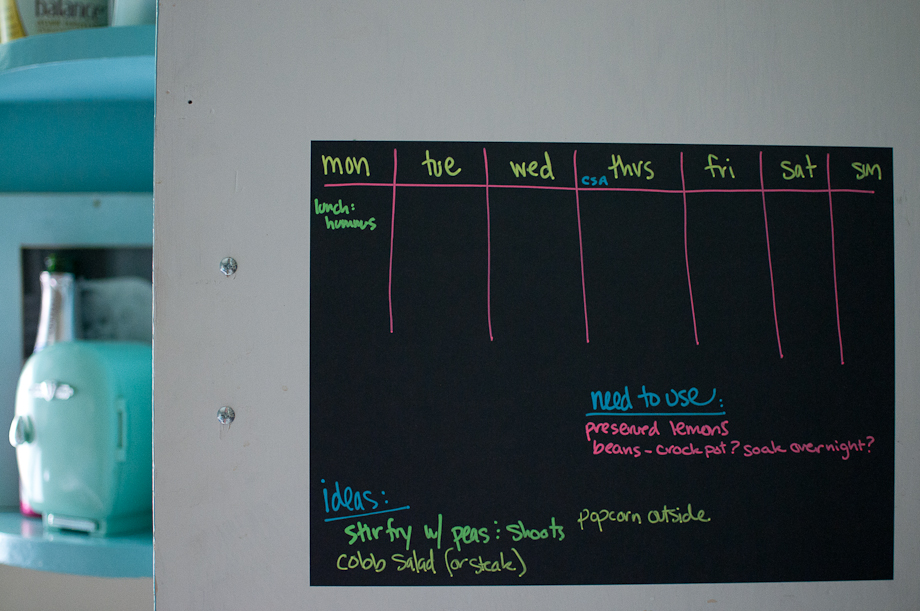 balance
mon tue wed thurs fri sat sun
CSA
lunch:
hummus
need to use:
preserved lemons
beans - crock pot? soak overnight?
ideas:
stirfry w/ peas : shoots
popcorn outside
cobb salad (or steak)